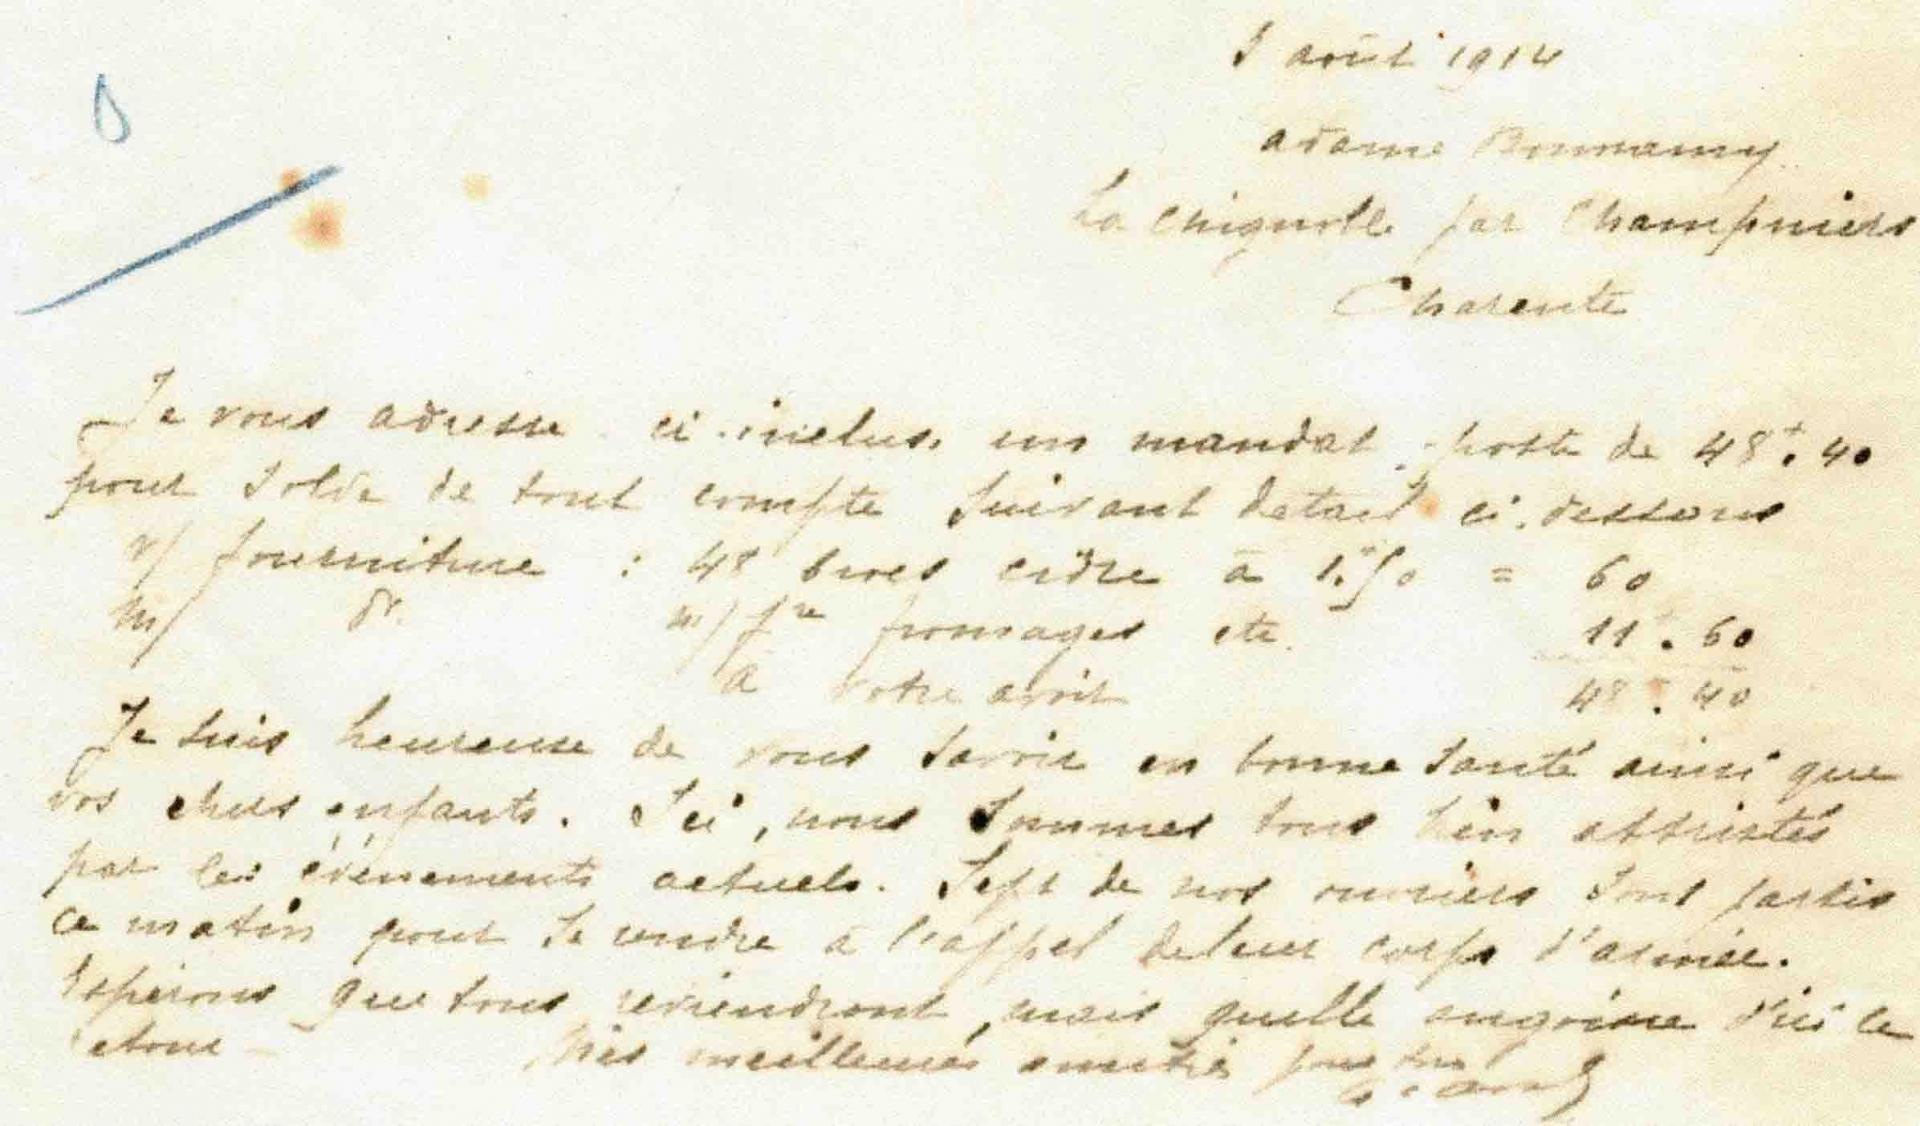 août 1914
adame Bonnamy
La Chignolle par Champniers
Charente
Je vous adresse ci-inclus un mandat-poste de 48f.40
pour solde de tout compte suivant detail ci-dessous
v/ fourniture : 48 cidre à = 60
m/ do. m/ fre fromages etc. 11.60
à votre avoir 48.40
Je suis heureuse de vous savoir en bonne santé ainsi que
vos chers enfants. Ici, nous sommes tous bien attristés
par les évènements actuels. Sept de nos ouvriers sont partis
ce matin pour se rendre à l'appel de leur corps d'armée.
Espérons que tous reviendront, mais quelle angoisse d'ici le
etour - Mes meilleures amitiés pour tous